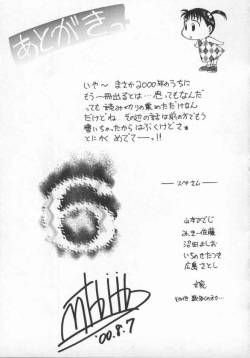 あとがきっ
いや〜 まさか2000年のうちに
もう一冊出るとは… 思ってもなんだ
っても 読み切りの集めただけなん
だけどね その辺の話は前の方でもう
書いちゃったからはぶくけどさ。
とにかく めでてーっ!!
スペサム
山本ひでじ
みっきー佐藤
沼田よしお
いちのせたつき
広島さとし
嫁
その他
6
'00.8.7